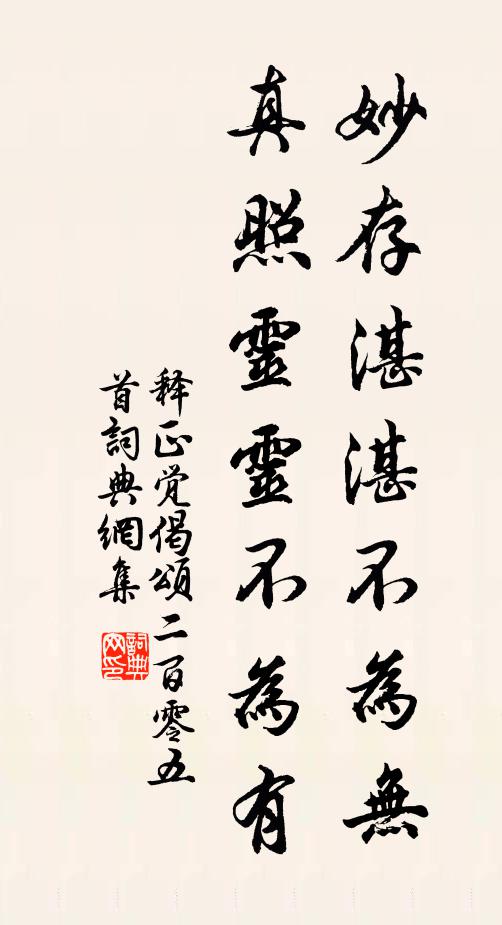 妙存湛湛不為無
真照靈靈不為有
释正觉偈頌二百零五
首詞典網集
詞典
网印